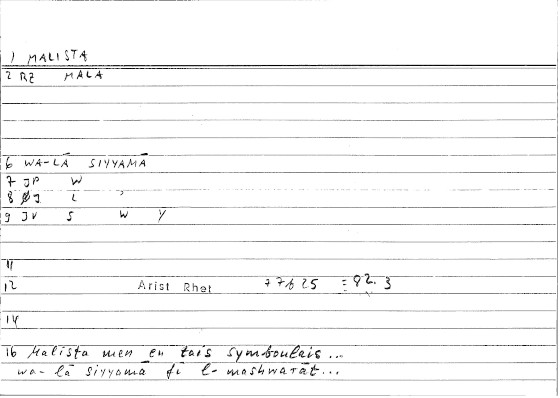 1) MALISTA
2 RZ MALA
6 WA-LĀ SIYYAMĀ
7 JP W
8 ØJ L ʾ
9 JV S W Y
11
12 Arist Rhet 77b25 = 92.3
14
16 Malista men en tais symboulais...
wa-lā siyyamā fī l-mashwarāt...